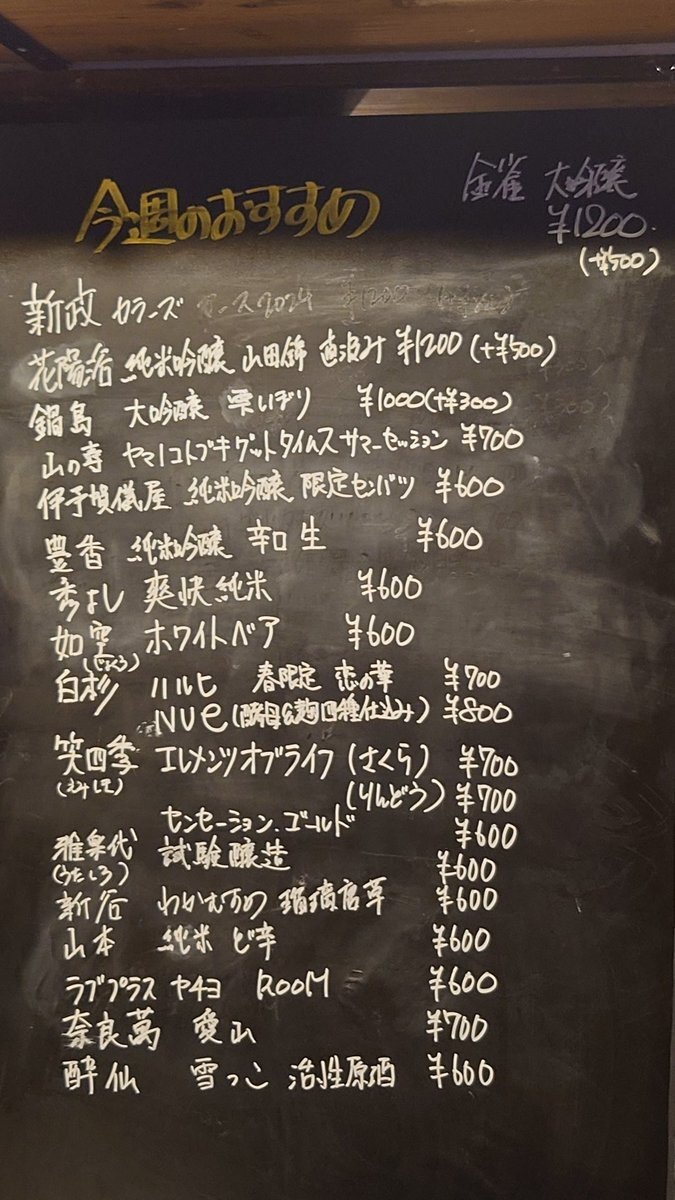 今週のおすすめ
金雀 大吟醸
¥1200
(+¥500)
新政 カラーズ
花陽浴 純米吟醸 山田錦 直汲み ¥1200 (+¥500)
鍋島 大吟醸 雫しぼり ¥1000 (+¥300)
山の寿 ヤマノコトブキグッドタイムス サマーセッション ¥700
伊予賀儀屋 純米吟醸 限定センバツ ¥600
豊香 純米吟醸 辛口 生 ¥600
秀よし 爽快純米 ¥600
如空 ホワイトベア ¥600
(じょくう)
白杉 ハルヒ 春限定 恋の華 ¥700
NUe (酵母&麹四種仕込み) ¥800
笑四季 エレメンツオブライフ (さくら) ¥700
(えみしき) (りんどう) ¥700
センセーション.ゴールド ¥600
雅楽代 試験醸造 ¥600
(うたしろ)
新谷 わかむすめ 瑠璃唐草 ¥600
山本 純米 ど辛 ¥600
ラブプラス ヤチヨ ROOM ¥600
奈良萬 愛山 ¥700
酔仙 雪っこ 活性原酒 ¥600